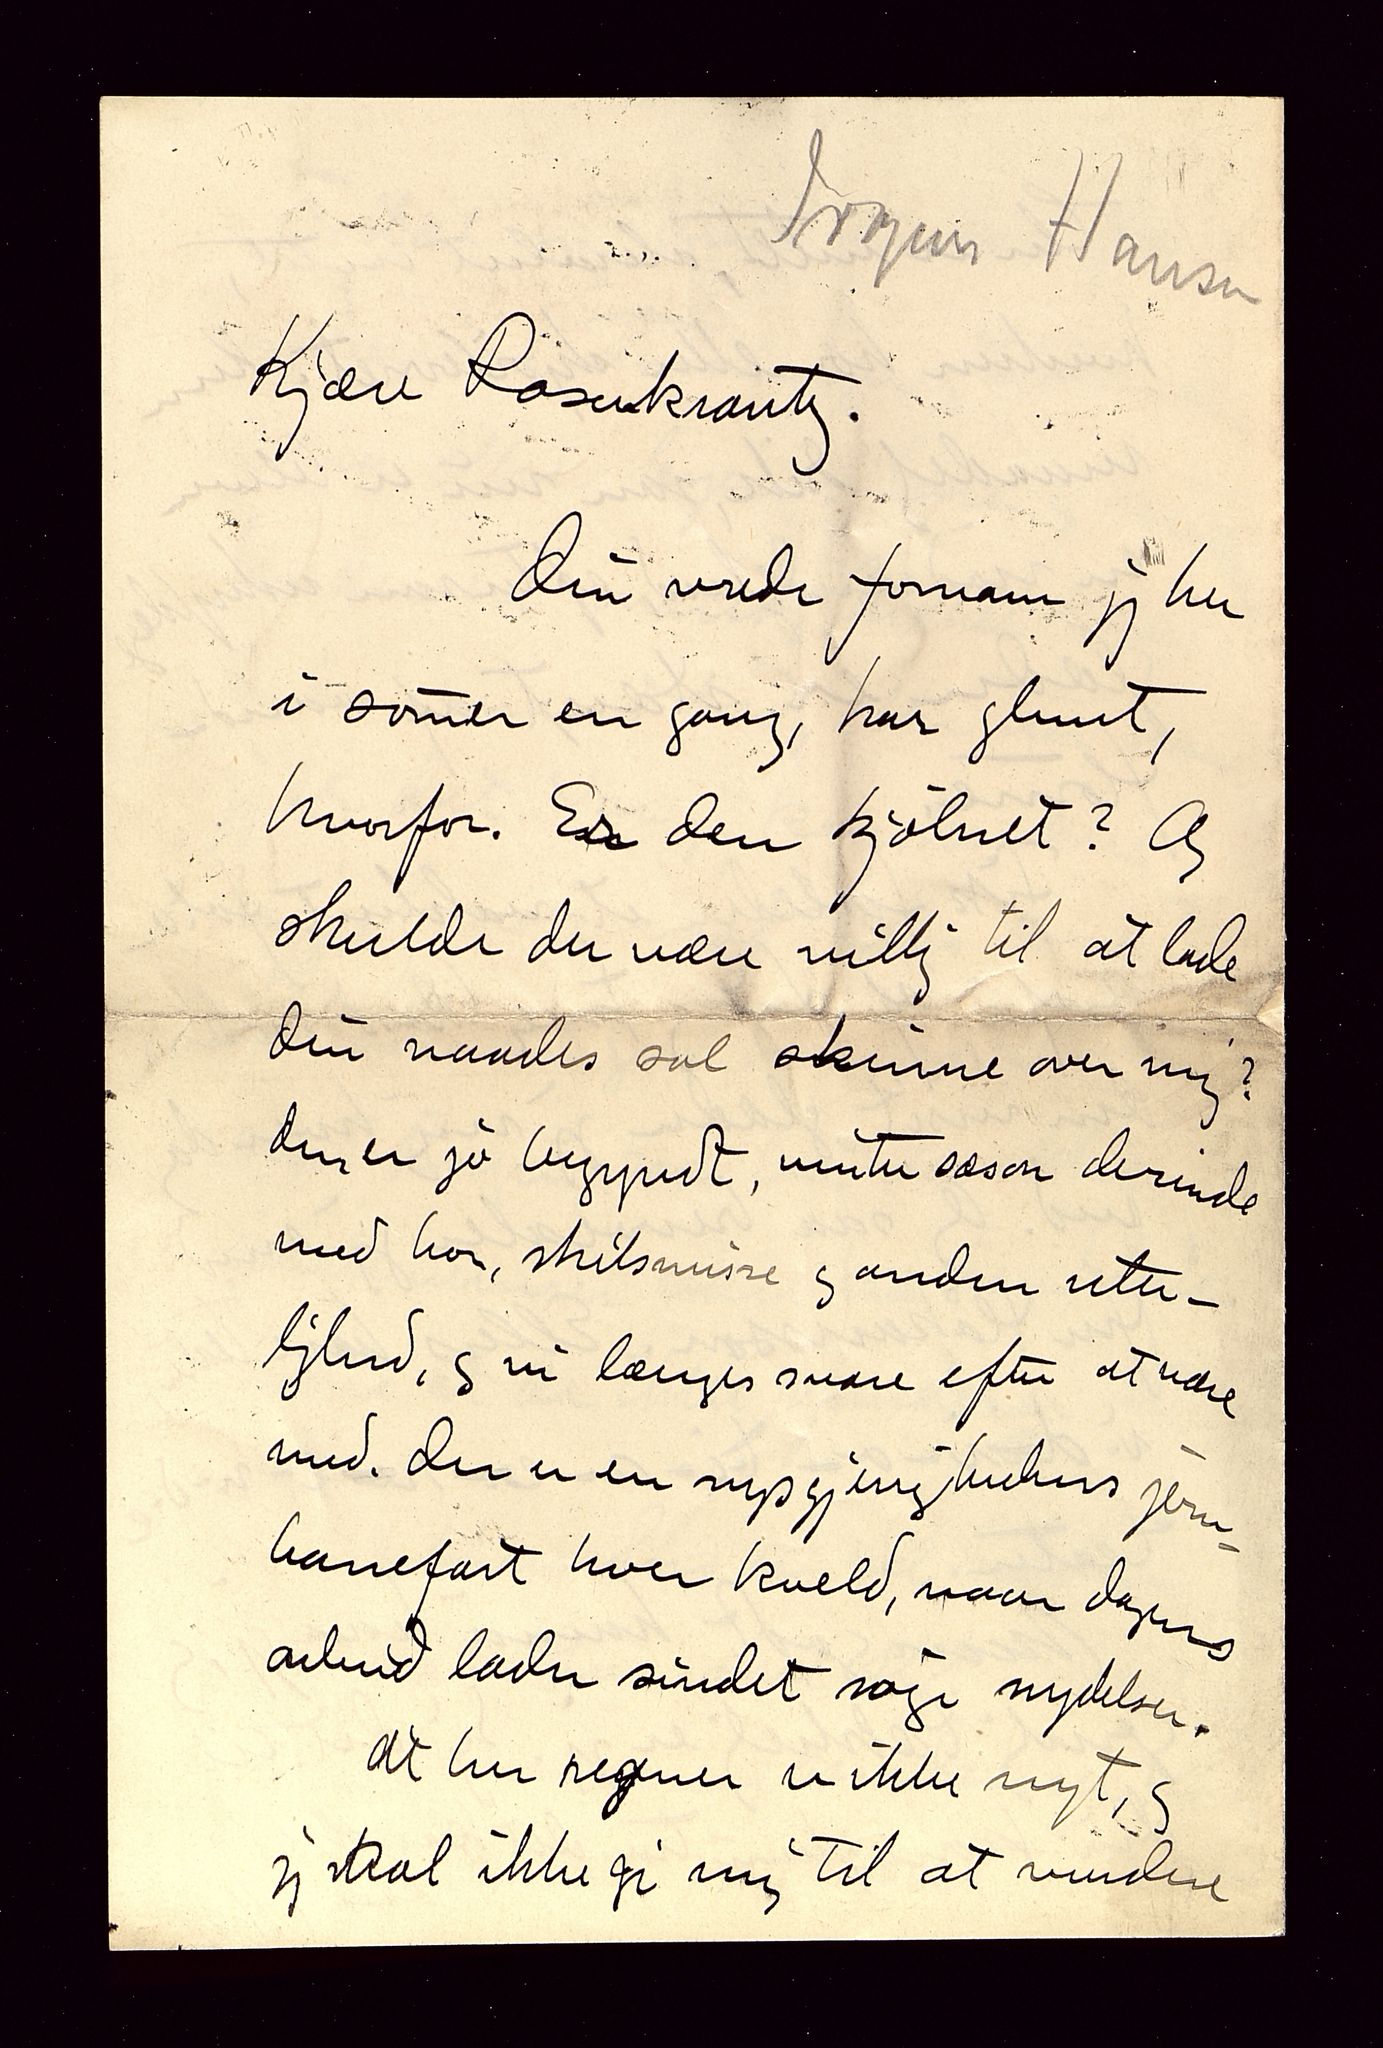 Irgens Hansen
Kjære Rosenkrantz.
Din vrede fornam jeg her
i som̄er en gang, har glemt,
hvorfor. Er den kjølnet? Og
skulde du være villig til at lade
din naades sol skinne over mig?
den er jo begyndt, vintersæson derinde
med hor, skilsmisse og anden uter-
lighed, og vi længes svare efter at være
med. Der er en nysgjerrighedens jern-
banefart hver kveld, naar dagens
arbeid lader sindet søge nydelser.
At her regner er ikke nyt, og
jeg skal ikke gi mig til at vurdere